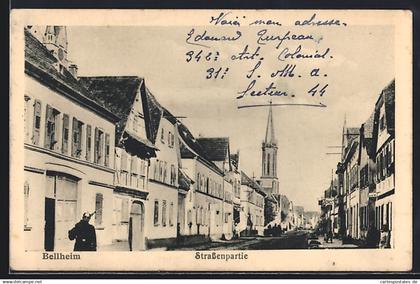 Voici mon adresse.
Edouard
342e art. Colonial
31e S. M. a.
Secteur. 44
Bellheim
Straßenpartie